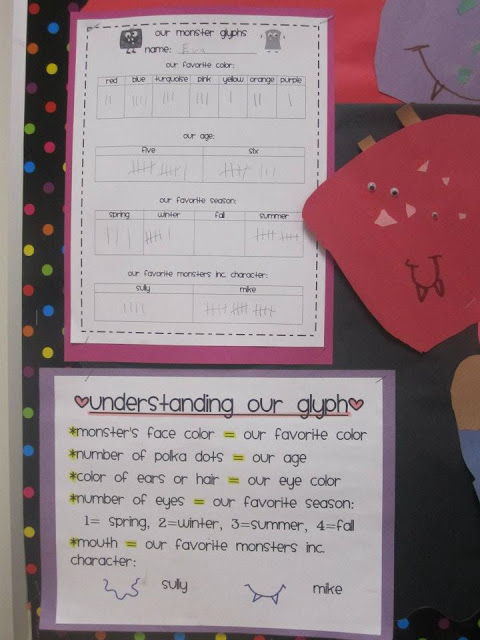 our monster glyphs
name: Eva
our favorite color:
red blue turquoise pink yellow orange purple
our age:
five six
our favorite season:
spring winter fall summer
our favorite monsters inc. character:
sully mike
understanding our glyph
*monster's face color = our favorite color
*number of polka dots = our age
*color of ears or hair = our eye color
*number of eyes = our favorite season:
1= spring, 2=winter, 3=summer, 4=fall
*mouth = our favorite monsters inc.
character:
sully mike